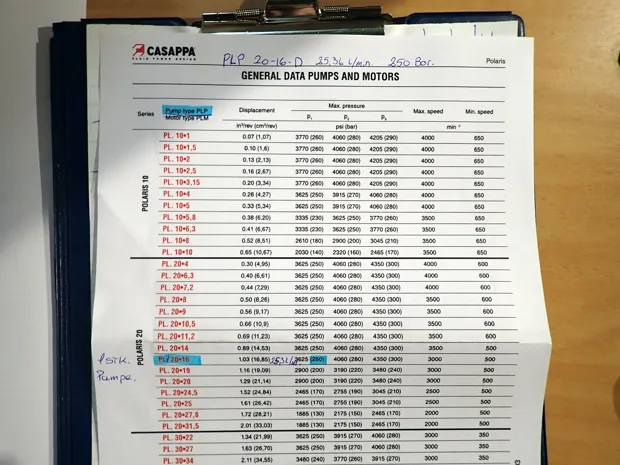 CASAPPA
FLUID POWER DESIGN
PLP 20-16-D 25,36 L/min. 250 Bar.
Polaris
GENERAL DATA PUMPS AND MOTORS
Series Pump type PLP Displacement Max. pressure Max. speed Min. speed
Motor type PLM p1 p2 p3
in³/rev (cm³/rev) psi (bar) min -1
POLARIS 10
PL. 10•1 0.07 (1,07) 3770 (260) 4060 (280) 4205 (290) 4000 650
PL. 10•1,5 0.10 (1,6) 3770 (260) 4060 (280) 4205 (290) 4000 650
PL. 10•2 0.13 (2,13) 3770 (260) 4060 (280) 4205 (290) 4000 650
PL. 10•2,5 0.16 (2,67) 3770 (260) 4060 (280) 4205 (290) 4000 650
PL. 10•3,15 0.20 (3,34) 3770 (260) 4060 (280) 4205 (290) 4000 650
PL. 10•4 0.26 (4,27) 3625 (250) 3915 (270) 4060 (280) 4000 650
PL. 10•5 0.33 (5,34) 3625 (250) 3915 (270) 4060 (280) 4000 650
PL. 10•5,8 0.38 (6,20) 3335 (230) 3625 (250) 3770 (260) 3500 650
PL. 10•6,3 0.41 (6,67) 3335 (230) 3625 (250) 3770 (260) 3500 650
PL. 10•8 0.52 (8,51) 2610 (180) 2900 (200) 3045 (210) 3500 650
PL. 10•10 0.65 (10,67) 2030 (140) 2320 (160) 2465 (170) 3500 650
POLARIS 20
PL. 20•4 0.30 (4,95) 3625 (250) 4060 (280) 4350 (300) 4000 600
PL. 20•6,3 0.40 (6,61) 3625 (250) 4060 (280) 4350 (300) 4000 600
PL. 20•7,2 0.44 (7,29) 3625 (250) 4060 (280) 4350 (300) 4000 600
PL. 20•8 0.50 (8,26) 3625 (250) 4060 (280) 4350 (300) 3500 600
PL. 20•9 0.56 (9,17) 3625 (250) 4060 (280) 4350 (300) 3500 600
PL. 20•10,5 0.66 (10,9) 3625 (250) 4060 (280) 4350 (300) 3500 600
PL. 20•11,2 0.69 (11,23) 3625 (250) 4060 (280) 4350 (300) 3500 600
PL. 20•14 0.89 (14,53) 3625 (250) 4060 (280) 4350 (300) 3500 500
1 stk. PLP 20•16 1.03 (16,85) 3625 (250) 4060 (280) 4350 (300) 3000 500
Pumpe. PL. 20•19 1.16 (19,09) 2900 (200) 3190 (220) 3480 (240) 3000 500
PL. 20•20 1.29 (21,14) 2900 (200) 3190 (220) 3480 (240) 3000 500
PL. 20•24,5 1.52 (24,84) 2465 (170) 2755 (190) 3045 (210) 2500 500
PL. 20•25 1.61 (26,42) 2465 (170) 2755 (190) 3045 (210) 2500 500
PL. 20•27,8 1.72 (28,21) 1885 (130) 2175 (150) 2465 (170) 2000 500
PL. 20•31,5 2.01 (33,03) 1885 (130) 2175 (150) 2465 (170) 2000 500
PL. 30•22 1.34 (21,99) 3625 (250) 3915 (270) 4060 (280) 3000 350
PL. 30•27 1.63 (26,70) 3625 (250) 3915 (270) 4060 (280) 3000 350
PL. 30•34 2.11 (34,55) 3480 (240) 3770 (260) 3915 (270) 3000 350